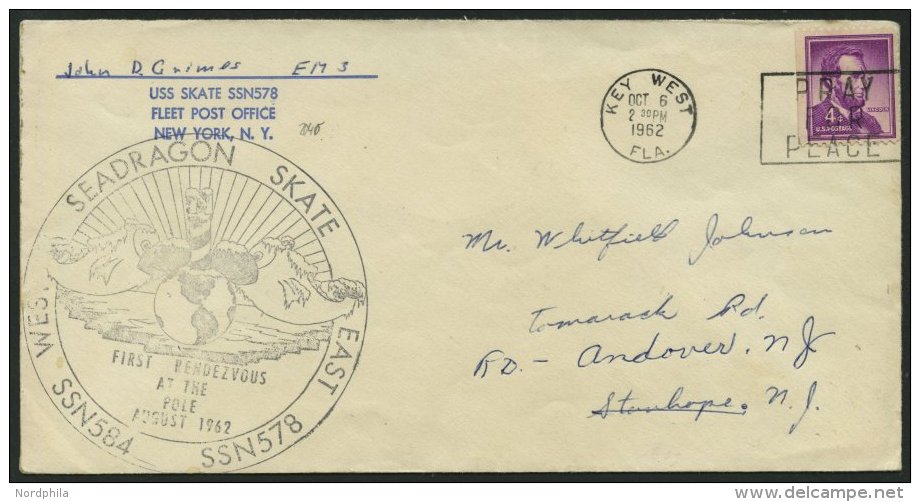 John D. Grimes EM 3
USS SKATE SSN578
FLEET POST OFFICE
NEW YORK, N. Y.
KEY WEST
OCT 6
2 30 PM
1962
FLA.
PRAY
FOR
PLACE
LINCOLN
4¢
U.S. POSTAGE
SEADRAGON SKATE
WEST EAST
FIRST RENDEZVOUS
AT THE
POLE
AUGUST 1962
SSN584 SSN578
Mr. Whitfield Johnson
Tamarack Rd.
RD. - Andover, NJ
Stanhope, N.J.
Nordphila
delcampe.net